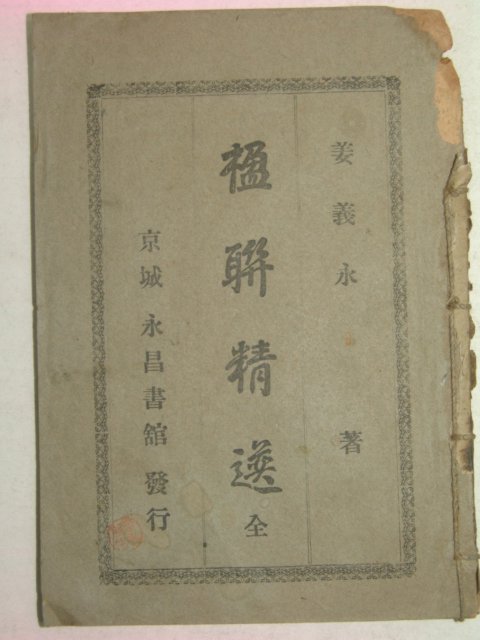 姜義永 著
楹聯精選 全
京城 永昌書舘 發行